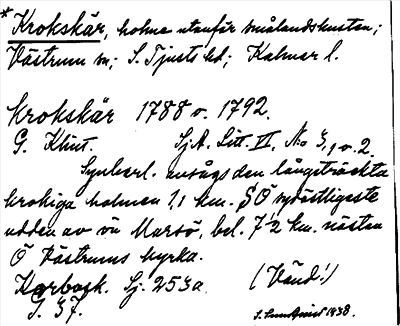 * Krokskär, holme utanför smålandskusten;
Västrum sn; S. Tjusts hd; Kalmar l.
Krokskär 1788 o. 1792.
G. Klint. Sj.A. Litt. II, No 3, 1 o. 2.
Synbarl. avsågs den långsträckta
krokiga holmen 1,1 km. SÖ sydöstligaste
udden av ön Marsö, bel. 7 1/2 km. nästan
Ö Västrums kyrka.
Karbask. Sj. 253 a. (Vänd!)
S. 37. 1938.